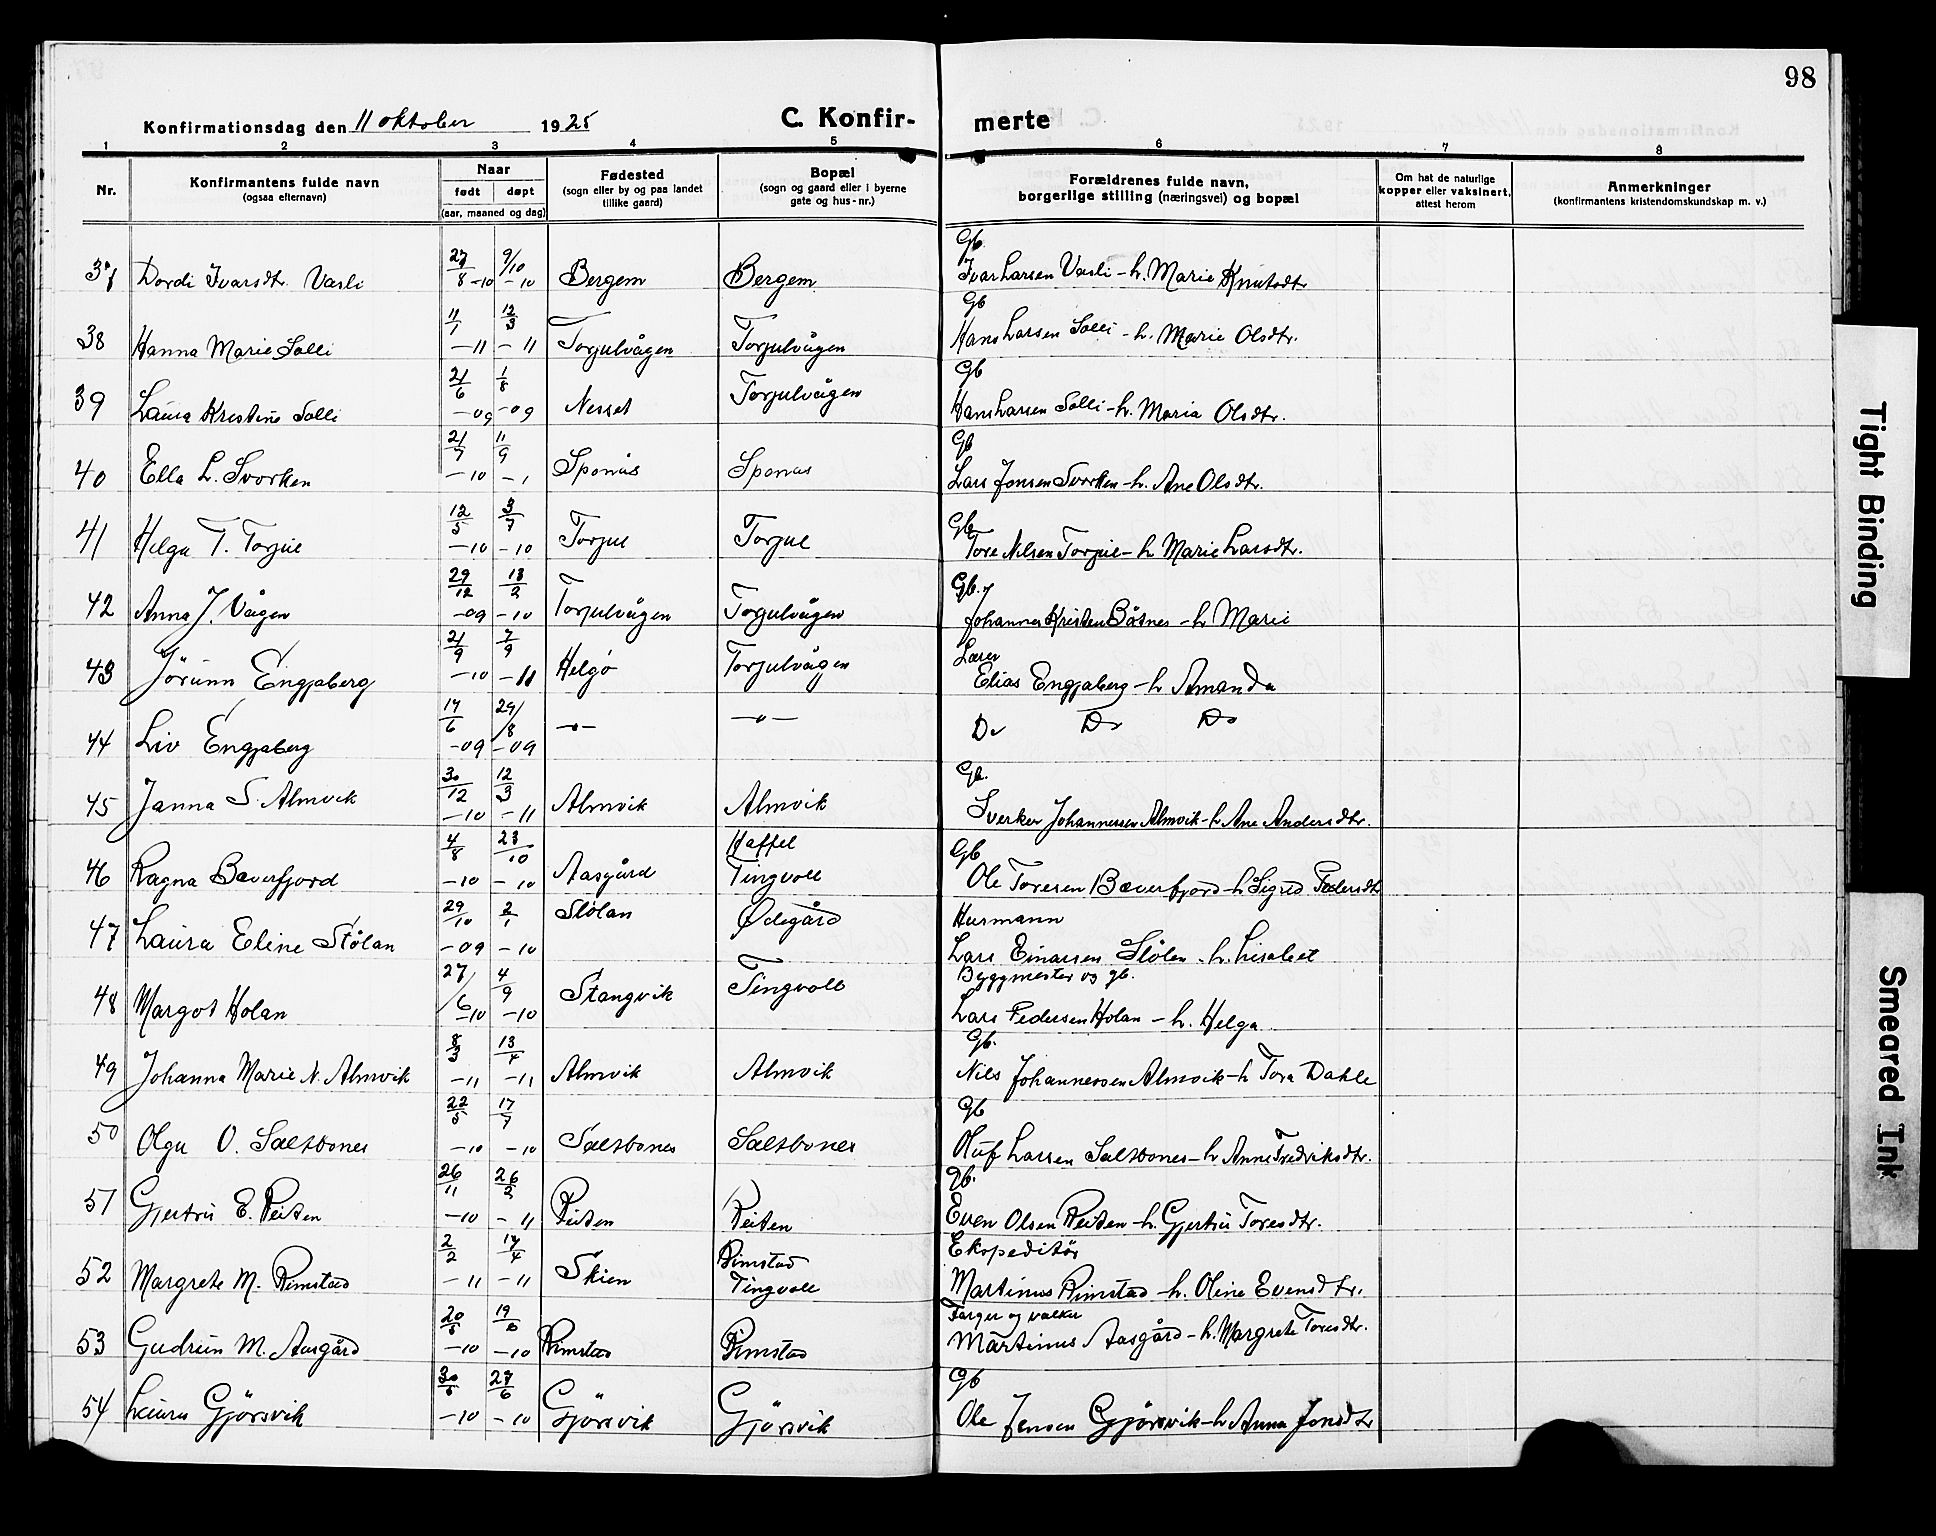 98
Konfirmationsdag den 11 oktober 1925 C. Konfir- merte
1 2 3 4 5 6 7 8
Nr.
Konfirmantens fulde navn
(ogsaa efternavn)
Naar
født døpt
(aar, maaned og dag)
Fødested
(sogn eller by og paa landet
tillike gaard)
Bopæl
(sogn og gaard eller i byerne
gate og hus-nr.)
Forældrenes fulde navn,
borgerlige stilling (næringsvei) og bopæl
Om hat de naturlige
kopper eller vaksinert,
attest herom
Anmerkninger
(konfirmantens kristendomskundskap m. v.)
Gb.
37 Dordi Ivarsdtr. Vasli 27/8 -10 9/10 -10 Bergem Bergem Ivar Larsen Vasli - h. Marie Knutsdtr
Gb
38 Hanna Marie Solli 11/1 -11 12/3 -11 Torjulvågen Torjulvågen Hans Larsen Solli - h. Marie Olsdtr.
Gb
39 Laura Kristine Solli 21/6 -09 1/8 -09 Nesset Torjulvågen Hans Larsen Solli - h. Maria Olsdtr.
Gb
40 Ella L. Svorken 21/7 -10 11/9 -1 Sponås Sponas Lars Jonsen Svorken - h. Ane Olsdtr.
Gb
41 Helga T. Torjul 12/5 -10 3/7 -10 Torjul Torjul Tore Nilsen Torjul - h Marie Larsdtr.
Gb.
42 Anna J. Vågen 29/12 -09 13/2 -10 Torjulvågen Torjulvågen Johannes Kristen Båsnes - h Marie
Lærer
43 Jörunn Engjaberg 21/9 -10 7/9 -11 Helgö Torjulvågen Elias Engjaberg - h Amanda
44 Liv Engjaberg 17/6 -09 29/8 -09 -"- -"- Do Do Do
Gb.
45 Janna S. Almvik 30/12 -10 12/3 -11 Almvik Almvik Sverker Johannessen Almvik - h Ane Andersdtr.
Haffel
Gb
46 Ragna Bæverfjord 4/8 -10 23/10 -10 Aasgård Tingvoll Ole Toresen Bæverfjord - h Sigrid Pedersdtr
Husmann
47 Laura Eline Stölan 29/10 -09 2/1 -10 Stölan Ødegård Lars Einarsen Stölen - h. Lisabet
Byggmester og gb.
48 Margot Holan 27/6 -10 4/9 -10 Stangvik Tingvoll Lars Pedersen Holan - h. Helga
Gb.
49 Johanna Marie N. Almvik 8/3 -11 13/4 -11 Almvik Almvik Nils Johannessen Almvik - h Tora Dahle
Gb
50 Olga O. Saltbones 22/5 -10 17/7 -10 Saltbones Saltbones Oluf Larsen Saltbones - h Anne Fredriksdtr.
Gb.
51 Gjertru E. Reiten 26/11 -10 26/2 -11 Reiten Reiten Even Olsen Reiten - h. Gjertru Toresdtr.
Ekspeditör
52 Margrete M. Rimstad 2/2 -11 17/4 -11 Skien Rimstad
Tingvoll Martinus Rimstad - h. Oline Evensdtr.
Farger og valker
53 Gudrun M. Aasgård 20/5 -10 19/6 -10 Rimstad Rimstad Martinus Aasgård - h. Margrete Toresdtr.
Gb
54 Laura Gjörsvik 30/5 -10 27/6 -10 Gjörsvik Gjörsvik Ole Jensen Gjörsvik - h Anna Jonsdtr
Tight Binding
Smeared Ink